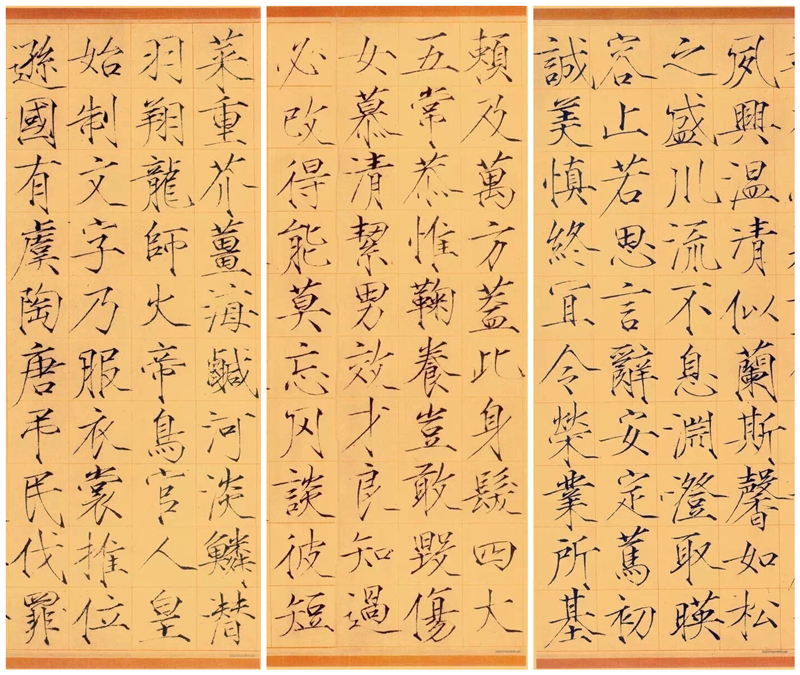 菜重芥薑海鹹河淡鱗潛
羽翔龍師火帝鳥官人皇
始制文字乃服衣裳推位
遜國有虞陶唐弔民伐罪
賴及萬方蓋此身髮四大
五常恭惟鞠養豈敢毀傷
女慕清絜男效才良知過
必改得能莫忘罔談彼短
夙興温清似蘭斯馨如松
之盛川流不息淵澄取暎
容止若思言辭安定篤初
誠美慎終宜令榮業所基